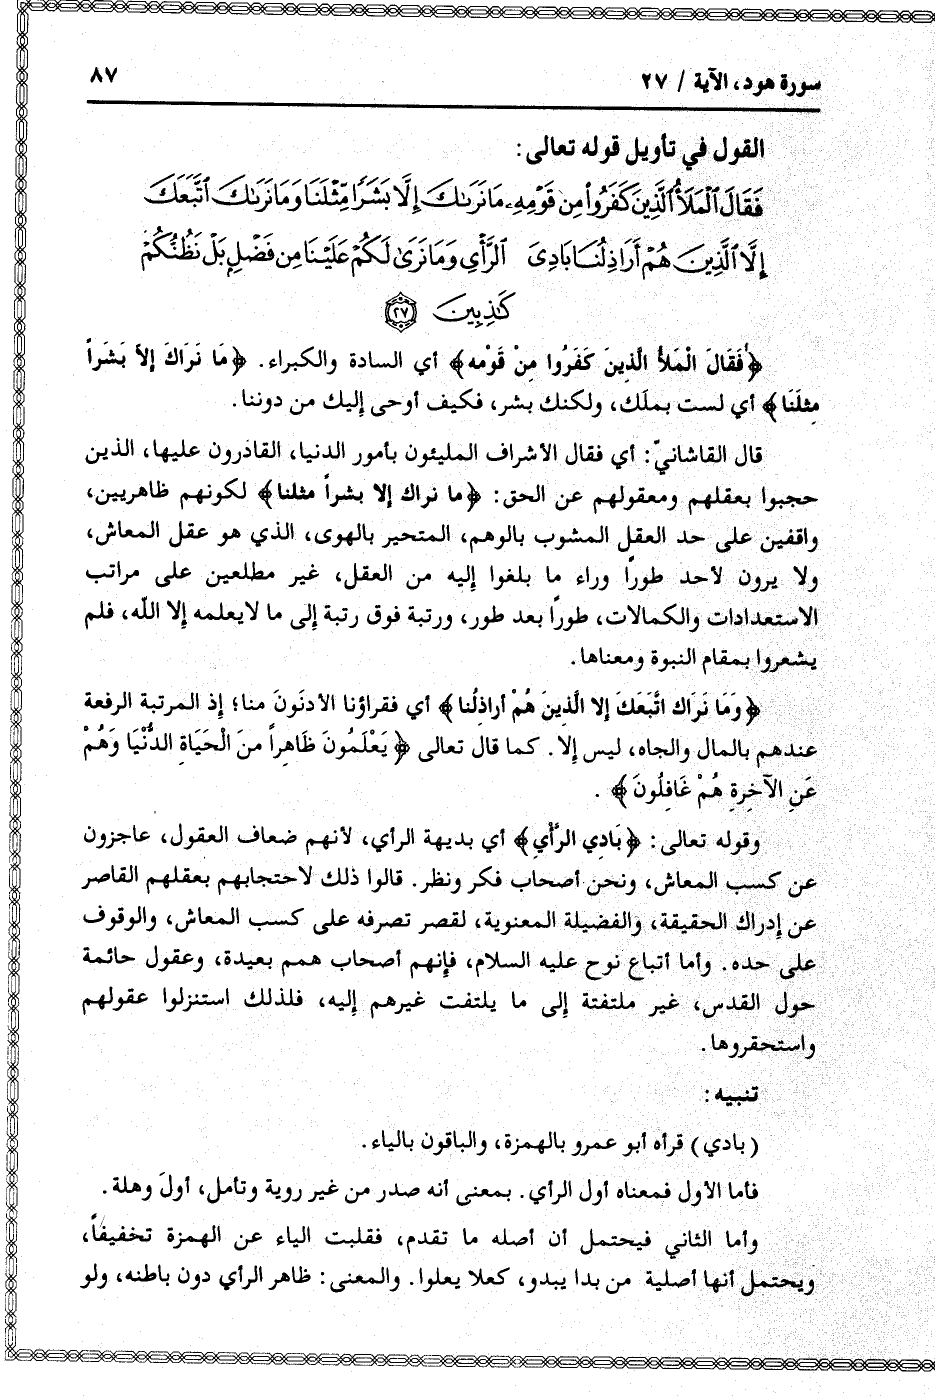 سورة هود، الآية / ٢٧
٨٧
القول في تأويل قوله تعالى:
فَقَالَ ٱلْمَلَأُ ٱلَّذِينَ كَفَرُوا۟ مِن قَوْمِهِۦ مَا نَرَىٰكَ إِلَّا بَشَرًا مِّثْلَنَا وَمَا نَرَىٰكَ ٱتَّبَعَكَ
إِلَّا ٱلَّذِينَ هُمْ أَرَاذِلُنَا بَادِىَ ٱلرَّأْىِ وَمَا نَرَىٰ لَكُمْ عَلَيْنَا مِن فَضْلٍۭ بَلْ نَظُنُّكُمْ
كَٰذِبِينَ ﴿٢٧﴾
﴿فَقَالَ الْمَلأُ الَّذِينَ كَفَرُوا مِنْ قَوْمِه﴾ أي السادة والكبراء. ﴿مَا نَرَاكَ إِلاَّ بَشَراً
مِثلَنَا﴾ أي لست بملَك، ولكنك بشر، فكيف أوحى إليك من دوننا.
قال القاشانيّ: أي فقال الأشراف المليئون بأمور الدنيا، القادرون عليها، الذين
حجبوا بعقلهم ومعقولهم عن الحق: ﴿ما نراك إلا بشراً مثلنا﴾ لكونهم ظاهريين،
واقفين على حد العقل المشوب بالوهم، المتحير بالهوى، الذي هو عقل المعاش،
ولا يرون لأحد طوراً وراء ما بلغوا إليه من العقل، غير مطلعين على مراتب
الاستعدادات والكمالات، طوراً بعد طور، ورتبة فوق رتبة إلى ما لايعلمه إلا اللّه، فلم
يشعروا بمقام النبوة ومعناها.
﴿وَمَا نَرَاك اتَّبَعَكَ إلا الَّذِينَ هُمْ أراذِلُنا﴾ أي فقراؤنا الأدنَونَ منا؛ إذ المرتبة الرفعة
عندهم بالمال والجاه، ليس إلا. كما قال تعالى ﴿يَعْلَمُونَ ظَاهِراً مِنَ الْحَيَاةِ الدُّنْيَا وَهُمْ
عَنِ الآخِرةِ هُمْ غَافِلُونَ﴾.
وقوله تعالى: ﴿بَادِي الرَّأْيِ﴾ أي بديهة الرأي، لأنهم ضعاف العقول، عاجزون
عن كسب المعاش، ونحن أصحاب فكر ونظر. قالوا ذلك لاحتجابهم بعقلهم القاصر
عن إدراك الحقيقة، والفضيلة المعنوية، لقصر تصرفه على كسب المعاش، والوقوف
على حده. وأما أتباع نوح عليه السلام، فإنهم أصحاب همم بعيدة، وعقول حائمة
حول القدس، غير ملتفتة إلى ما يلتفت غيرهم إليه، فلذلك استنزلوا عقولهم
واستحقروها.
تنبيه:
(بادي) قرأه أبو عمرو بالهمزة، والباقون بالياء.
فأما الأول فمعناه أول الرأي. بمعنى أنه صدر من غير روية وتأمل، أولَ وهلة.
وأما الثاني فيحتمل أن أصله ما تقدم، فقلبت الياء عن الهمزة تخفيفاً،
ويحتمل أنها أصلية من بدا يبدو، كعلا يعلوا. والمعنى: ظاهر الرأي دون باطنه، ولو